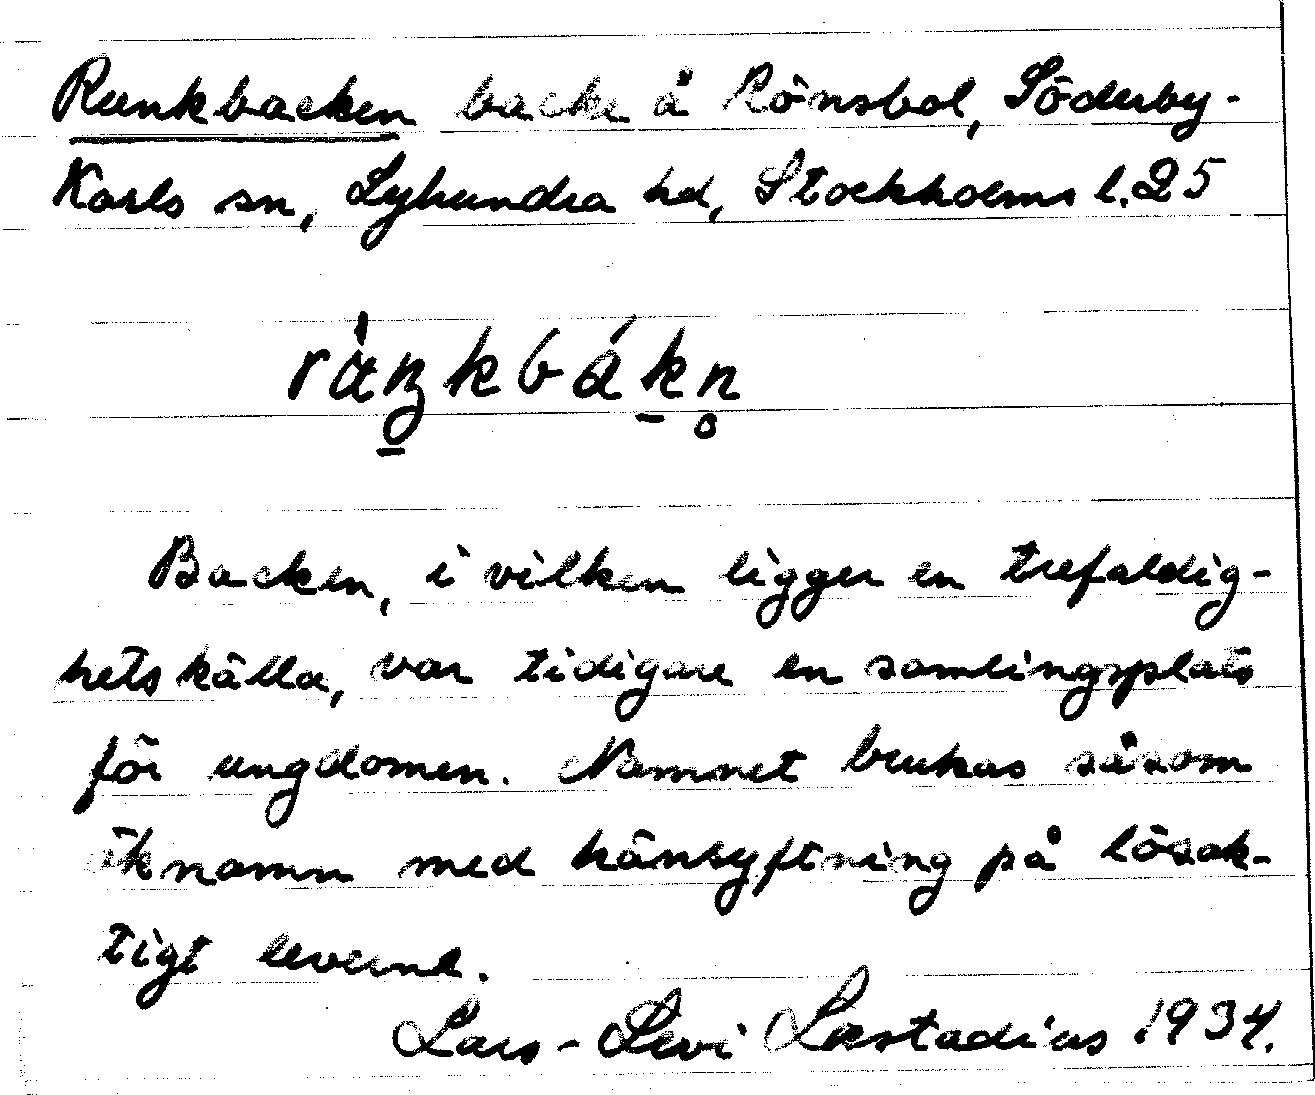 Runkbacken backe å Rönsbol, Söderby-
Karls sn, Lyhundra hd, Stockholms l. 25
Backen, i vilken ligger en trefaldig-
hetskälla, var tidigare en samlingsplats
för ungdomen. Namnet brukas såsom
öknamn med hänsyftning på lösak-
tigt leverne.
Lars-Levi Læstadius 1934.